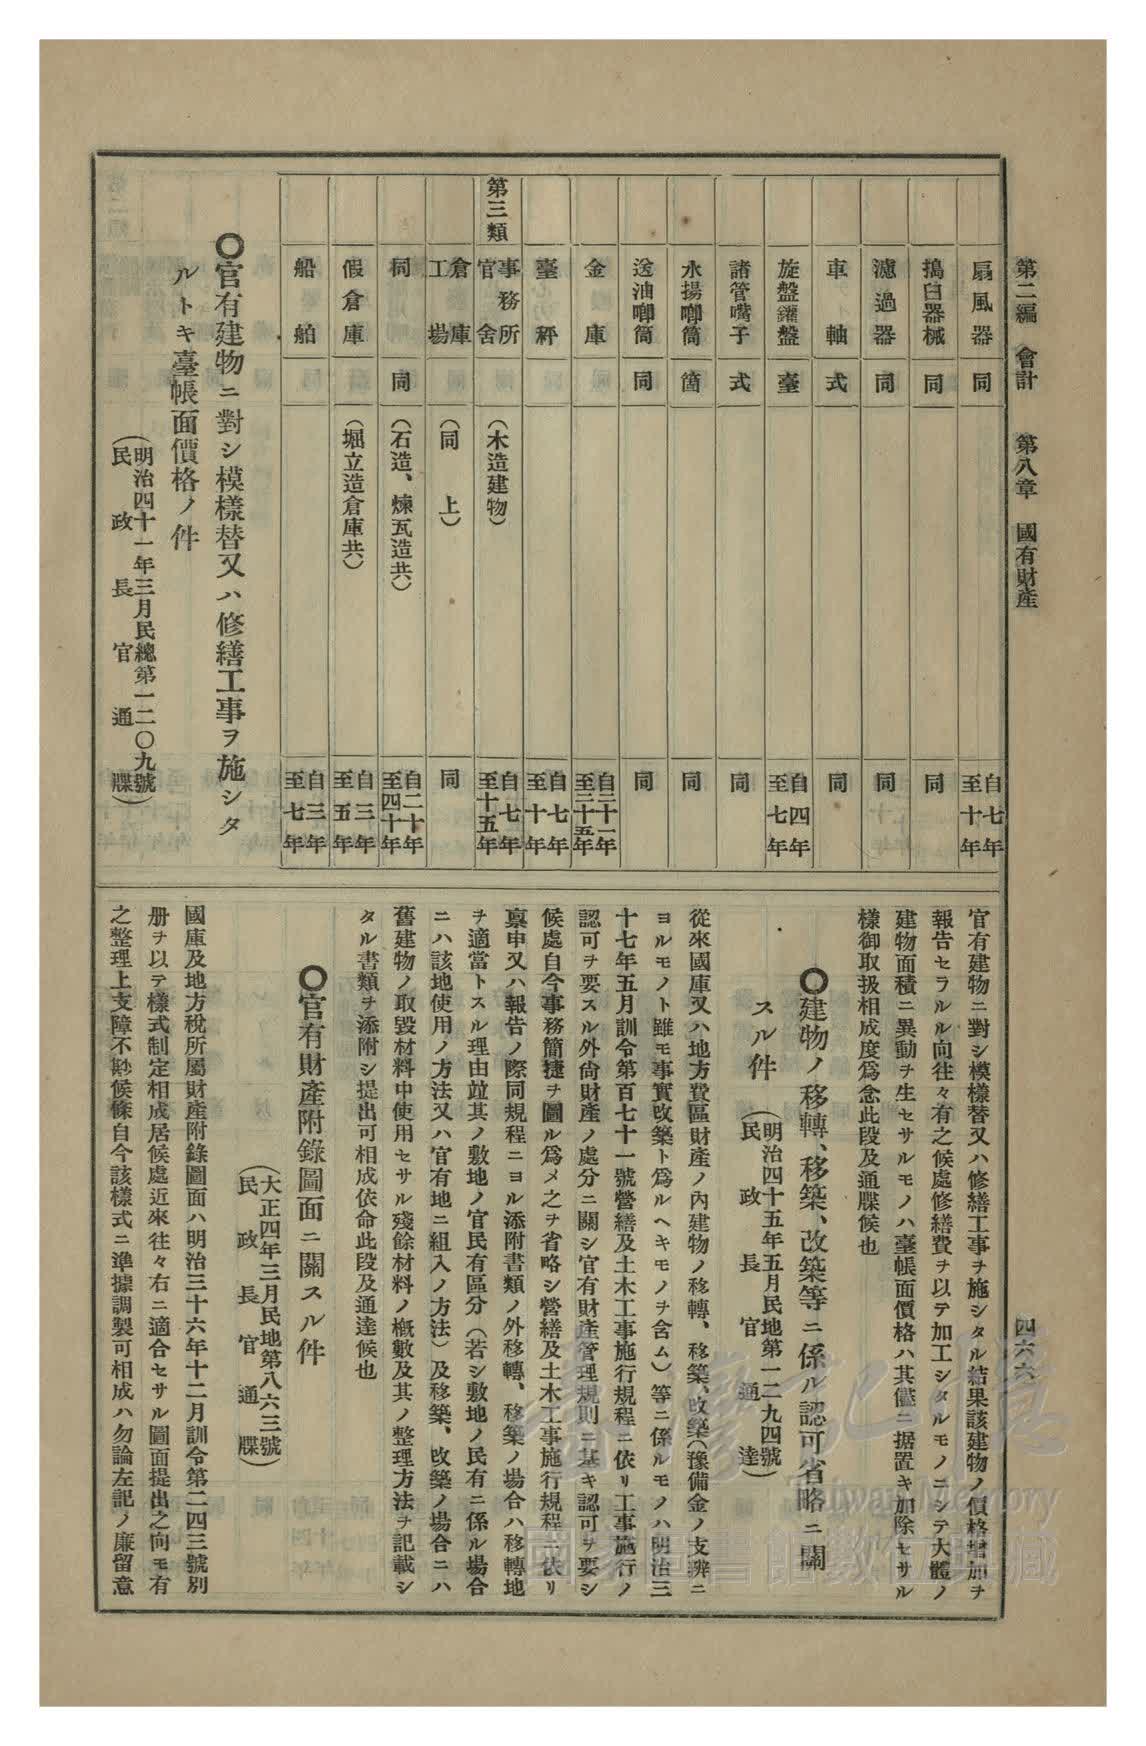 第二編　會計　　第八章　國有財產　　四六六
扇風器　同　自七年至十年
搗臼器械　同　同
濾過器　同　同
車軸　式　同
旋盤鑵盤　臺　自四年至七年
諸管嘴子　式　同
水揚喞筒　箇　同
送油喞筒　同　同
金庫　自二十一年至二十五年
臺秤　自七年至十年
第三類　事務所官舍　(木造建物)　自七年至十五年
倉庫工場　(同上)　同
同　同　(石造、煉瓦造共)　自二十年至四十年
假倉庫　(堀立造倉庫共)　自三年至五年
船舶　自三年至七年
〇官有建物ニ對シ模樣替又ハ修繕工事ヲ施シタ
ルトキ臺帳面價格ノ件
(明治四十一年三月民總第一二〇九號
民政長官通牒)
官有建物ニ對シ模樣替又ハ修繕工事ヲ施シタル結果該建物ノ價格增加ヲ
報告セラルル向往々有之候處修繕費ヲ以テ加工シタルモノニシテ大體ノ
建物面積ニ異動ヲ生セサルモノハ臺帳面價格ハ其儘ニ据置キ加除セサル
樣御取扱相成度爲念此段及通牒候也
〇建物ノ移轉、移築、改築等ニ係ル認可省略ニ關
スル件
(明治四十五年五月民地第一二九四號
民政長官通達)
從來國庫又ハ地方費區財產ノ內建物ノ移轉、移築、改築(豫備金ノ支辨ニ
ヨルモノト雖モ事實改築ト爲ルヘキモノヲ含ム)等ニ係ルモノハ明治三
十七年五月訓令第百七十一號營繕及土木工事施行規程ニ依リ工事施行ノ
認可ヲ要スル外尙財產ノ處分ニ關シ官有財產管理規則ニ基キ認可ヲ要シ
候處自今事務簡捷ヲ圖ル爲メ之ヲ省略シ營繕及土木工事施行規程ニ依リ
稟申又ハ報告ノ際同規程ニヨル添附書類ノ外移轉、移築ノ場合ハ移轉地
ヲ適當トスル理由竝其ノ敷地ノ官民有區分(若シ敷地ノ民有ニ係ル場合
ニハ該地使用ノ方法又ハ官有地ニ組入ノ方法)及移築、改築ノ場合ニハ
舊建物ノ取毀材料中使用セサル殘餘材料ノ槪數及其ノ整理方法ヲ記載シ
タル書類ヲ添附シ提出可相成依命此段及通達候也
〇官有財產附錄圖面ニ關スル件
(大正四年三月民地第八六三號
民政長官通牒)
國庫及地方稅所屬財產附錄圖面ハ明治三十六年十二月訓令第二四三號別
册ヲ以テ樣式制定相成居候處近來往々右ニ適合セサル圖面提出之向モ有
之整理上支障不尠候條自今該樣式ニ準據調製可相成ハ勿論左記ノ廉留意
臺灣記憶
Taiwan Memory
國家圖書館數位典藏